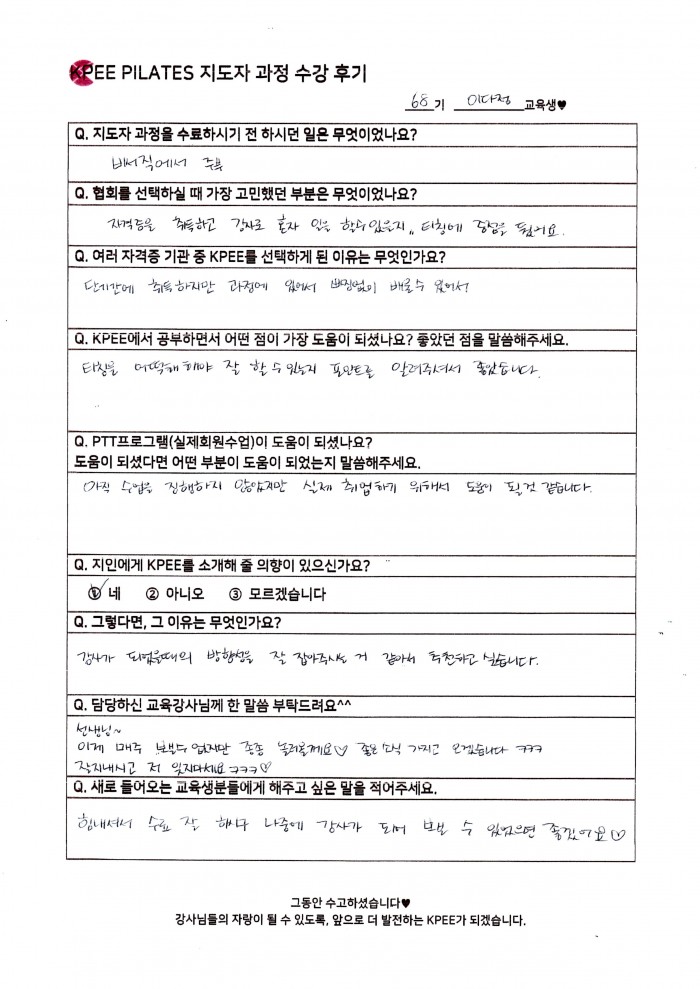 KPEE PILATES 지도자 과정 수강 후기
68 기 이다정 교육생♥
Q. 지도자 과정을 수료하시기 전 하시던 일은 무엇이었나요?
비서직에서 주부
Q. 협회를 선택하실 때 가장 고민했던 부분은 무엇이었나요?
자격증을 취득하고 강사로 혼자 일을 할수있을지,, 티칭에 중점을 뒀어요.
Q. 여러 자격증 기관 중 KPEE를 선택하게 된 이유는 무엇인가요?
단기간에 취득하지만 과정에 있어서 빠짐없이 배울수 있어서
Q. KPEE에서 공부하면서 어떤 점이 가장 도움이 되셨나요? 좋았던 점을 말씀해주세요.
티칭을 어떡해 해야 잘 할 수 있는지 포인트를 알려주셔서 좋았습니다.
Q. PTT프로그램(실제회원수업)이 도움이 되셨나요?
도움이 되셨다면 어떤 부분이 도움이 되었는지 말씀해주세요.
아직 수업을 진행하지 않았지만 실제 취업하기 위해서 도움이 될것 같습니다.
Q. 지인에게 KPEE를 소개해 줄 의향이 있으신가요?
① 네 ② 아니오 ③ 모르겠습니다
Q. 그렇다면, 그 이유는 무엇인가요?
강사가 되었을때의 방향성을 잘 잡아주시는 거 같아서 추천하고 싶습니다.
Q. 담당하신 교육강사님께 한 말씀 부탁드려요^^
선생님~
이제 매주 볼수 없지만 종종 놀러올게요♡ 좋은 소식 가지고 오겠습니다 ㅋㅋㅋ
잘지내시고 저 잊지마세요 ㅋㅋㅋ♡
Q. 새로 들어오는 교육생분들에게 해주고 싶은 말을 적어주세요.
힘내셔서 수료 잘 하시구 나중에 강사가 되어 보볼 수 있었으면 좋겠어요♡
그동안 수고하셨습니다♥
강사님들의 자랑이 될 수 있도록, 앞으로 더 발전하는 KPEE가 되겠습니다.